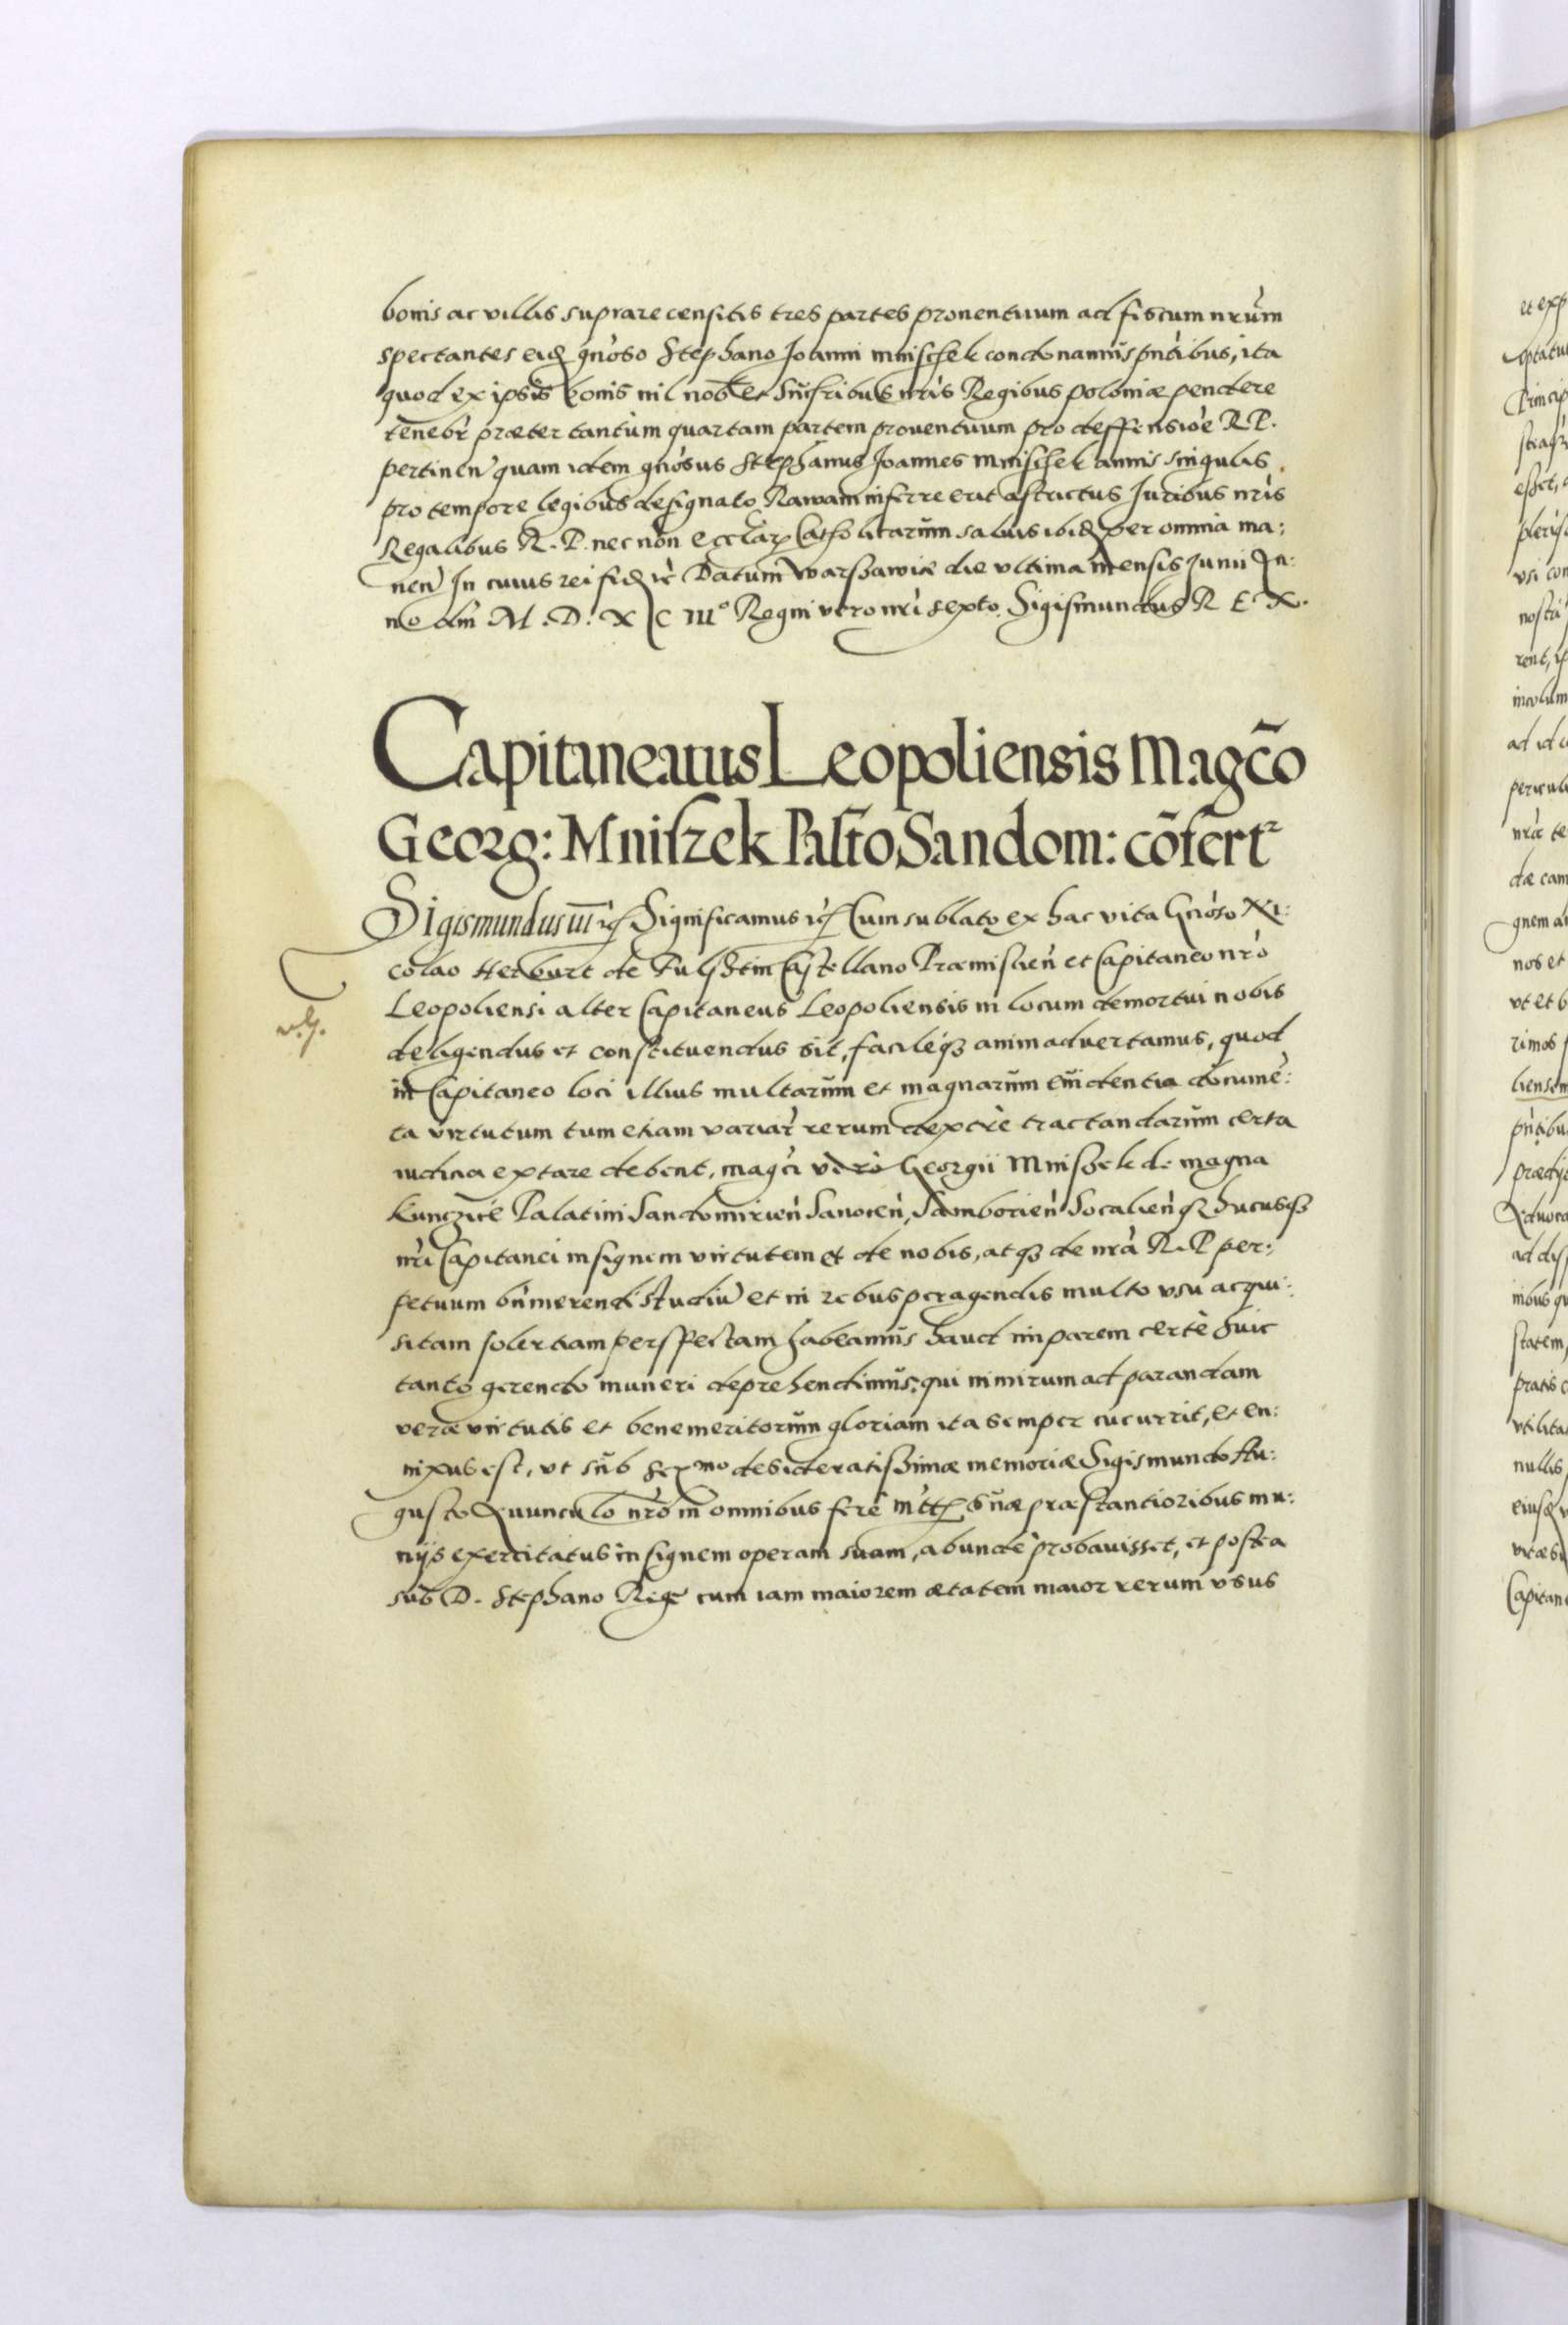 bonis ac villis suprarecensitis tres partes prouentuum ad fiscum nrũm
spectantes eid gnòso Stephano Joanni mnischek condonamus pntibus, ita
quod ex ipsis bonis nil nob et Sucsribus nris Regibus poloniæ pendere
tenebr præter tantùm quartam partem prouentuum pro deffensiòe R.P.
pertinen quam idem gnòsus Stephanus Joannes Mnischek annis singulis
pro tempore legibus designato Rawam inferre erit astrictus Juribus nris
Regalibus R. P. nec non Ecclar Catholicarum saluis ibid per omnia ma:
nen In cuius rei fid rc Datum Warszawiæ die vltima mensis Junii An:
no dni M. D. XC IIIº Regni vero nri sexto. Sigismundus R E X.
Capitaneatus Leopoliensis Magco
Georg: Mniszek Palto Sandom: cõfert
Sigismundus III rc Significamus rc Cum sublato ex hac vita Gnòso Ni:
colao Herburt de Fulsztin Castellano Præmislien et Capitaneo nro
Leopoliensi alter Capitaneus Leopoliensis in locum demortui nobis
v.g.
deligendus et constituendus sit, facileq animaduertamus, quod
in Capitaneo loci illius multarum et magnarum euidentia documẽ:
ta virtutum tum etiam variar rerum dextrè tractandarum certa
iudicia extare debent, magci verò Georgii Mnisek de magna
Kunczice Palatini Sandomirien Sanocen, Samborien Socalienq hucusq
nri Capitanei insignem virtutem et de nobis, atq de nrà R.P per:
petuum bnmerendi studiũ et in rebus peragendis multo vsu acqui:
sitam solertiam perspectam habeamus haud imparem certè huic
tanto gerendo muneri deprehendimus; qui nimirum ad parandam
veræ virtutis et benemeritorum gloriam ita semper cucurrit, et en:
nixus est, vt sub Sermo desideratissimæ memoriæ Sigismundo Au:
gusto Auunculo nro in omnibus ferè suæ præstantioribus mu:
nijs exercitatus insignem operam suam, abundè probauisset, et postea
sub D. Stephano Rege cum iam maiorem ætatem maior rerum vsus